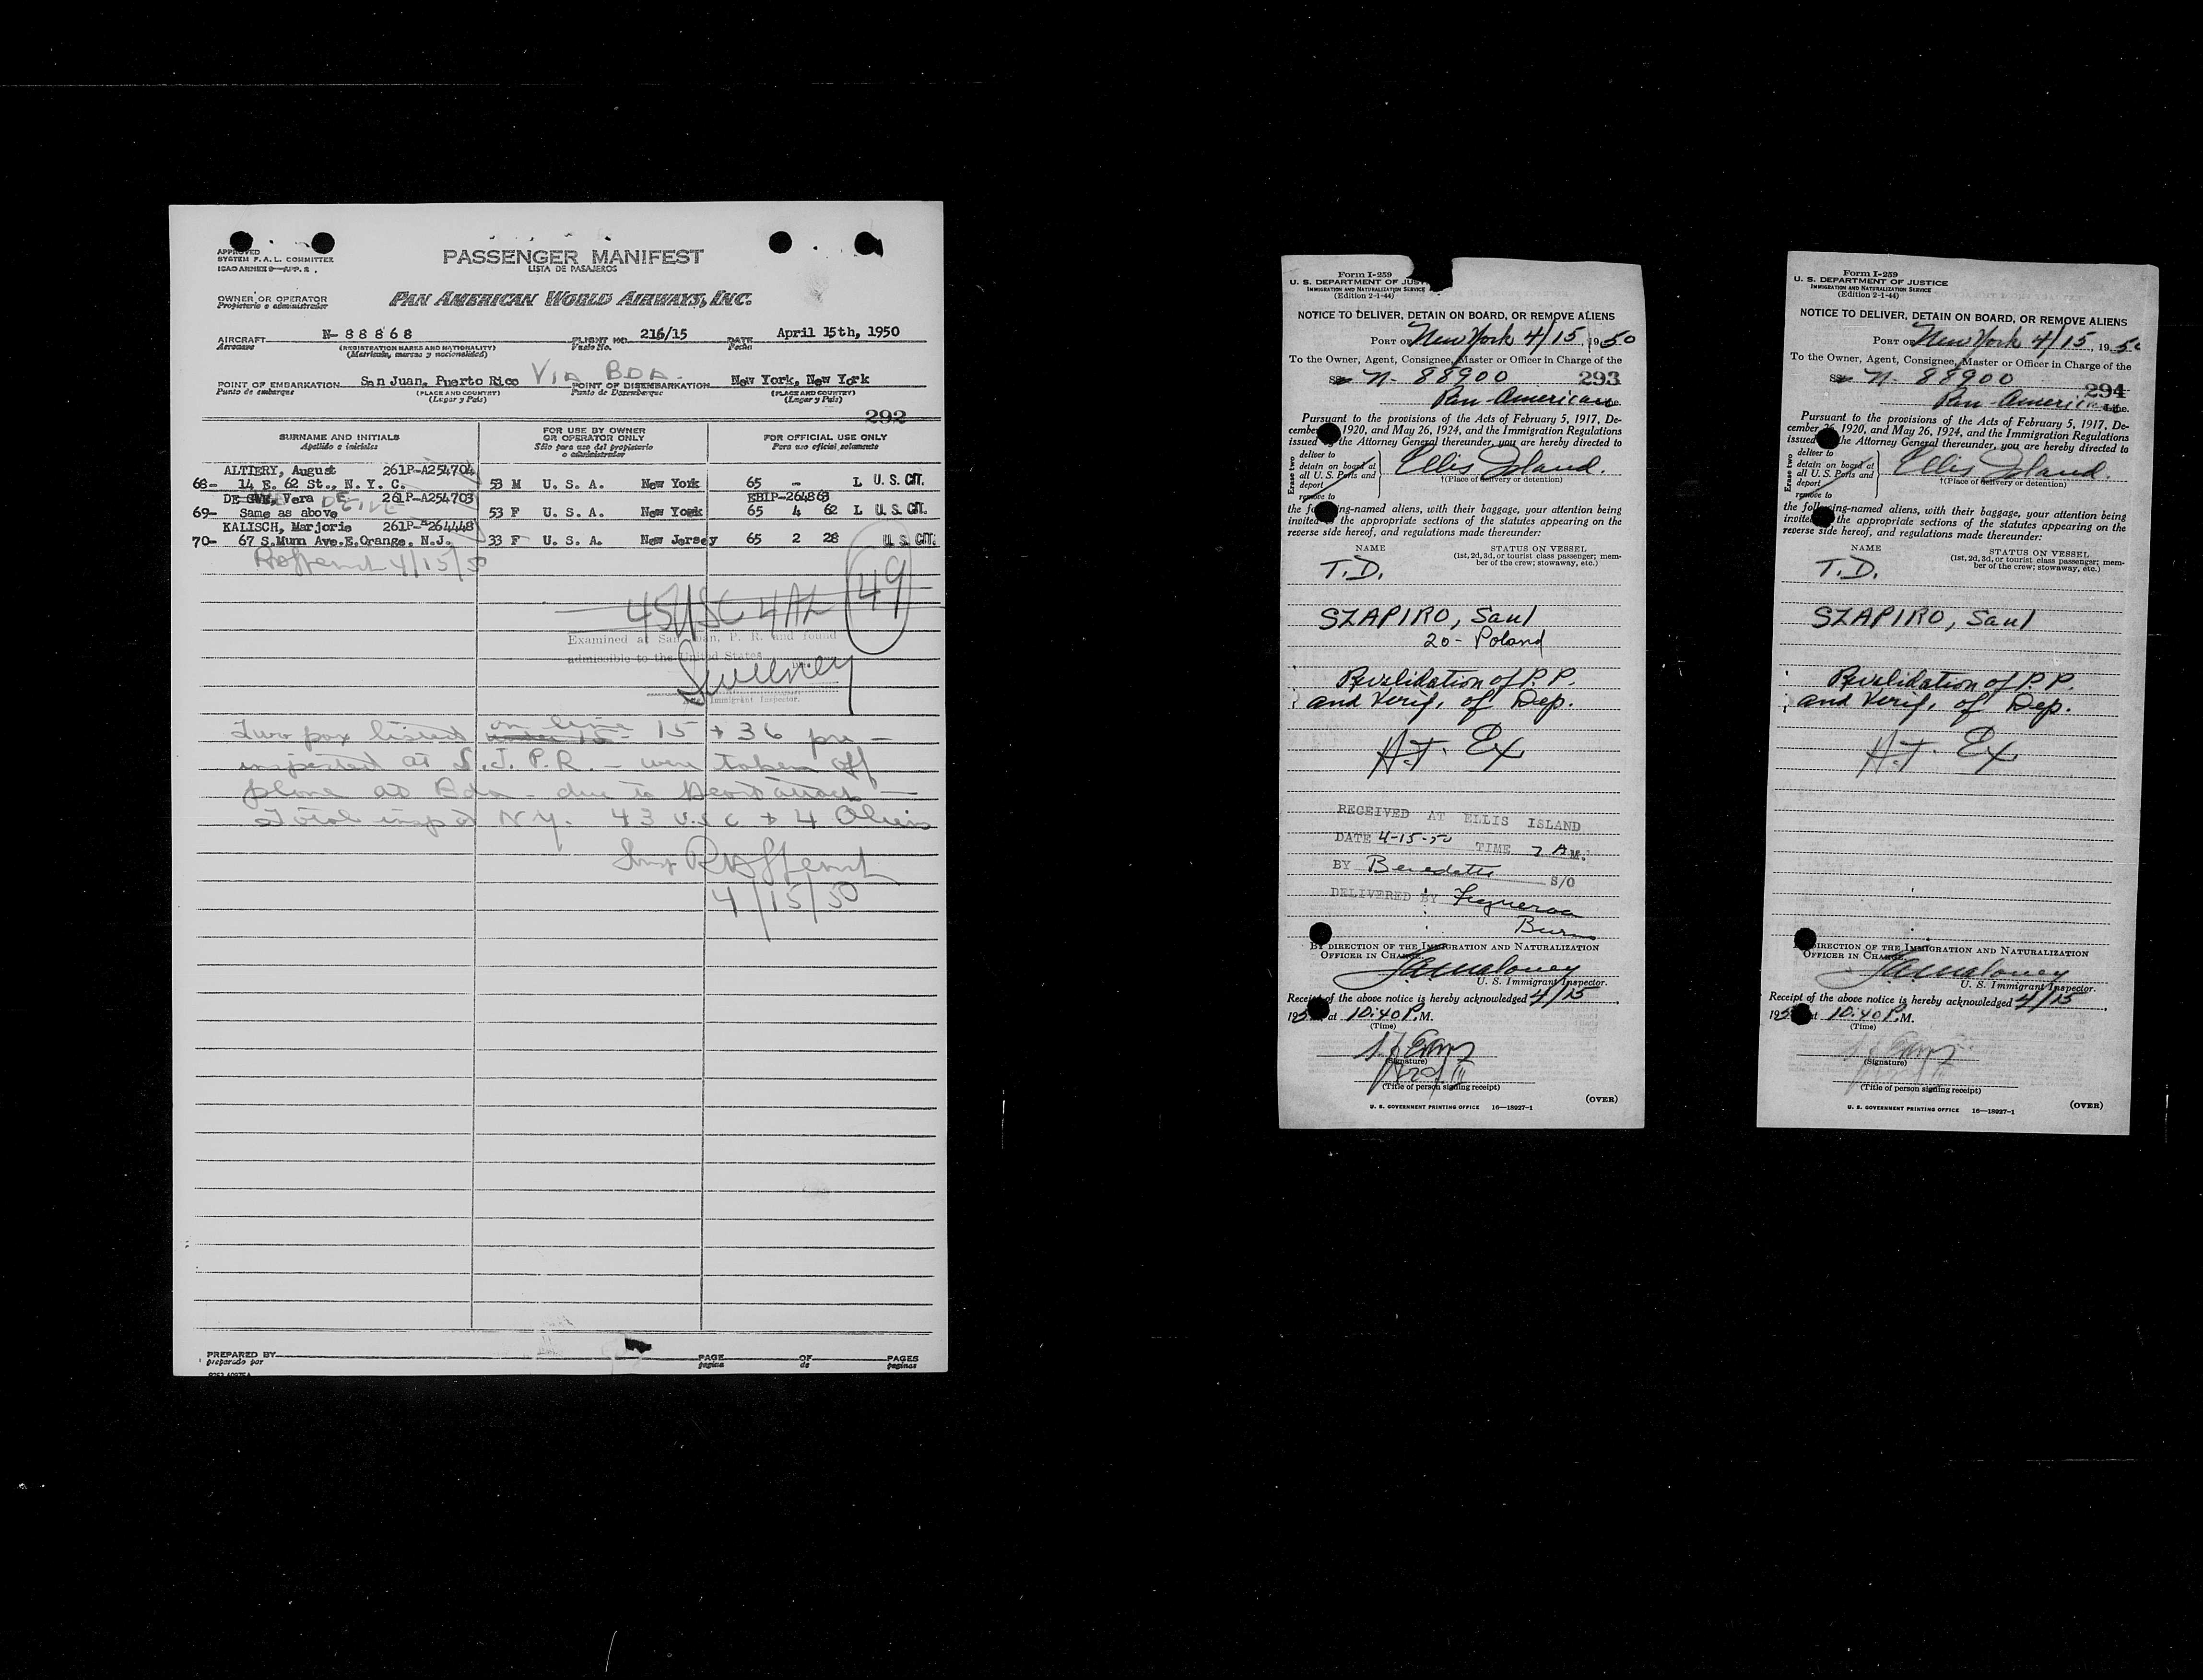 APPROVED
SYSTEM F. A. L. COMMITTEE
ICAO ANNEX 9—APP. 2
PASSENGER MANIFEST
LISTA DE PASAJEROS
OWNER OR OPERATOR
Propietario o administrador
PAN AMERICAN WORLD AIRWAYS, INC.
AIRCRAFT N-88868 FLIGHT NO. 216/15 DATE April 15th, 1950
Aeronave (REGISTRATION MARKS AND NATIONALITY) Vuelo No. Fecha
(Matrícula, marcas y nacionalidad)
POINT OF EMBARKATION San Juan, Puerto Rico VIA BDA. POINT OF DISEMBARKATION New York, New York
Punto de embarque (PLACE AND COUNTRY) Punto de Desembarque (PLACE AND COUNTRY)
(Lugar y País) (Lugar y País)
292
SURNAME AND INITIALS FOR USE BY OWNER OR OPERATOR ONLY FOR OFFICIAL USE ONLY
Apellido e iniciales Sólo para uso del propietario o administrador Para uso oficial solamente
ALTIERY, August 261P-A254704
68- 14 E. 62 St., N. Y. C. 53 M U. S. A. New York 65 - L U. S. CIT.
DE Vera 261P-A254703 EBIP-264863
69- Same as above 53 F U. S. A. New York 65 4 62 L U. S. CIT.
KALISCH, Marjorie 261P-A264448
70- 67 S.Munn Ave.E.Orange, N.J. 33 F U. S. A. New Jersey 65 2 28 U. S. CIT.
4/15/50
45 USC 4 AL 49
Examined at San Juan, P. R. and found
admissible to the United States
Immigrant Inspector.
Two pax listed on line 15 + 36 pre-
inspected at S.J. P.R. - were taken off
plane at Bda - due to Heart attack -
Total insp'd N.Y. 43 U.S.C + 4 Aliens
4/15/50
PREPARED BY PAGE OF PAGES
preparado por pagina de paginas
Form I-259
U. S. DEPARTMENT OF JUST
IMMIGRATION AND NATURALIZATION SERVICE
(Edition 2-1-44)
NOTICE TO DELIVER, DETAIN ON BOARD, OR REMOVE ALIENS
PORT OF New York 4/15, 1950
To the Owner, Agent, Consignee, Master or Officer in Charge of the
SS N-88900 293
Pan-American Line.
Pursuant to the provisions of the Acts of February 5, 1917, De-
cember 1920, and May 26, 1924, and the Immigration Regulations
issued the Attorney General thereunder, you are hereby directed to
Erase two
deliver to
detain on board at
all U. S. Ports and
deport
remove to
Ellis Island.
†(Place of delivery or detention)
the following-named aliens, with their baggage, your attention being
invited the appropriate sections of the statutes appearing on the
reverse side hereof, and regulations made thereunder:
NAME STATUS ON VESSEL
(1st, 2d, 3d, or tourist class passenger; mem-
ber of the crew; stowaway, etc.)
T.D.
SZAPIRO, Saul
20- Poland
Revalidation of P.P.
and Verif. of Dep.
H.T. Ex
RECEIVED AT ELLIS ISLAND
DATE 4-15-50 TIME 7 A M.
BY Benedetto S/O
DELIVERED BY Figueroa
Burns
BY DIRECTION OF THE IMMIGRATION AND NATURALIZATION
OFFICER IN CHARGE.
Maloney
U. S. Immigrant Inspector.
Receipt of the above notice is hereby acknowledged 4/15
195 at 10:40 P.M.
(Time)
(Signature)
(Title of person signing receipt)
(OVER)
U. S. GOVERNMENT PRINTING OFFICE 16—18927-1
Form I-259
U. S. DEPARTMENT OF JUSTICE
IMMIGRATION AND NATURALIZATION SERVICE
(Edition 2-1-44)
NOTICE TO DELIVER, DETAIN ON BOARD, OR REMOVE ALIENS
PORT OF New York 4/15, 195
To the Owner, Agent, Consignee, Master or Officer in Charge of the
SS N-88900 294
Pan-American Line.
Pursuant to the provisions of the Acts of February 5, 1917, De-
cember 26, 1920, and May 26, 1924, and the Immigration Regulations
issued the Attorney General thereunder, you are hereby directed to
Erase two
deliver to
detain on board at
all U. S. Ports and
deport
remove to
Ellis Island.
†(Place of delivery or detention)
the following-named aliens, with their baggage, your attention being
invited the appropriate sections of the statutes appearing on the
reverse side hereof, and regulations made thereunder:
NAME STATUS ON VESSEL
(1st, 2d, 3d, or tourist class passenger; mem-
ber of the crew; stowaway, etc.)
T.D.
SZAPIRO, Saul
Revalidation of P.P.
and Verif. of Dep.
H.T. Ex
DIRECTION OF THE IMMIGRATION AND NATURALIZATION
OFFICER IN CHARGE.
Maloney
U. S. Immigrant Inspector.
Receipt of the above notice is hereby acknowledged 4/15
195 at 10:40 P.M.
(Time)
(Signature)
(Title of person signing receipt)
(OVER)
U. S. GOVERNMENT PRINTING OFFICE 16—18927-1